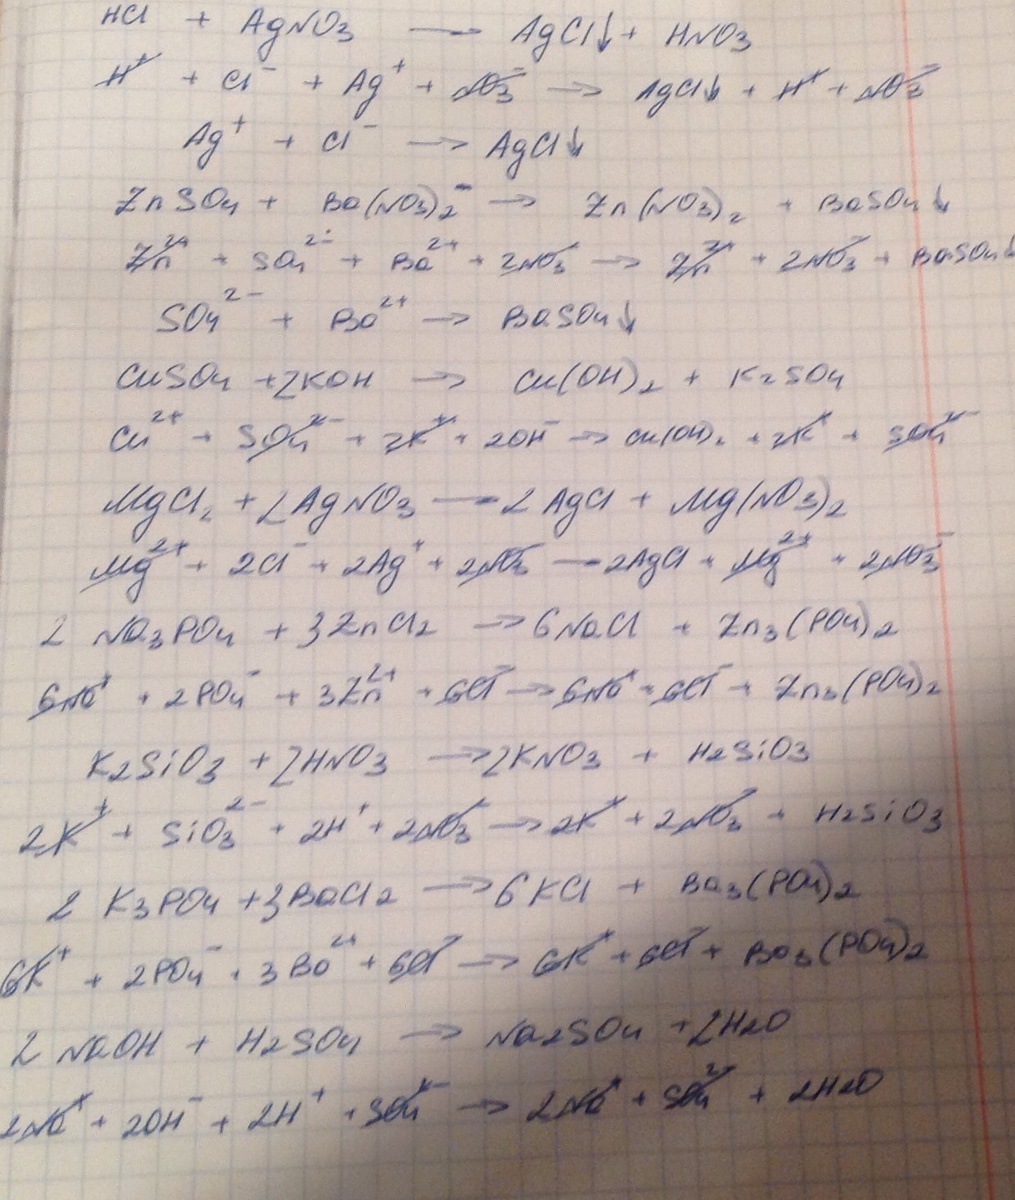 HCl + AgNO₃ — AgCl↓ + HNO₃
H⁺ + Cl⁻ + Ag⁺ + NO₃⁻ → AgCl↓ + H⁺ + NO₃⁻
Ag⁺ + Cl⁻ → AgCl↓
ZnSO₄ + Ba(NO₃)₂ → Zn(NO₃)₂ + BaSO₄↓
Zn²⁺ + SO₄²⁻ + Ba²⁺ + 2NO₃⁻ → Zn²⁺ + 2NO₃⁻ + BaSO₄↓
SO₄²⁻ + Ba²⁺ → BaSO₄↓
CuSO₄ + 2KOH → Cu(OH)₂ + K₂SO₄
Cu²⁺ + SO₄²⁻ + 2K⁺ + 2OH⁻ → Cu(OH)₂ + 2K⁺ + SO₄²⁻
MgCl₂ + 2AgNO₃ — 2AgCl + Mg(NO₃)₂
Mg²⁺ + 2Cl⁻ + 2Ag⁺ + 2NO₃⁻ — 2AgCl + Mg²⁺ + 2NO₃⁻
2Na₃PO₄ + 3ZnCl₂ → 6NaCl + Zn₃(PO₄)₂
6Na⁺ + 2PO₄⁻ + 3Zn²⁺ + 6Cl⁻ → 6Na⁺ + 6Cl⁻ + Zn₃(PO₄)₂
K₂SiO₃ + 2HNO₃ → 2KNO₃ + H₂SiO₃
2K⁺ + SiO₃²⁻ + 2H⁺ + 2NO₃⁻ → 2K⁺ + 2NO₃⁻ + H₂SiO₃
2K₃PO₄ + 3BaCl₂ → 6KCl + Ba₃(PO₄)₂
6K⁺ + 2PO₄⁻ + 3Ba²⁺ + 6Cl⁻ → 6K⁺ + 6Cl⁻ + Ba₃(PO₄)₂
2NaOH + H₂SO₄ → Na₂SO₄ + 2H₂O
2Na⁺ + 2OH⁻ + 2H⁺ + SO₄²⁻ → 2Na⁺ + SO₄²⁻ + 2H₂O